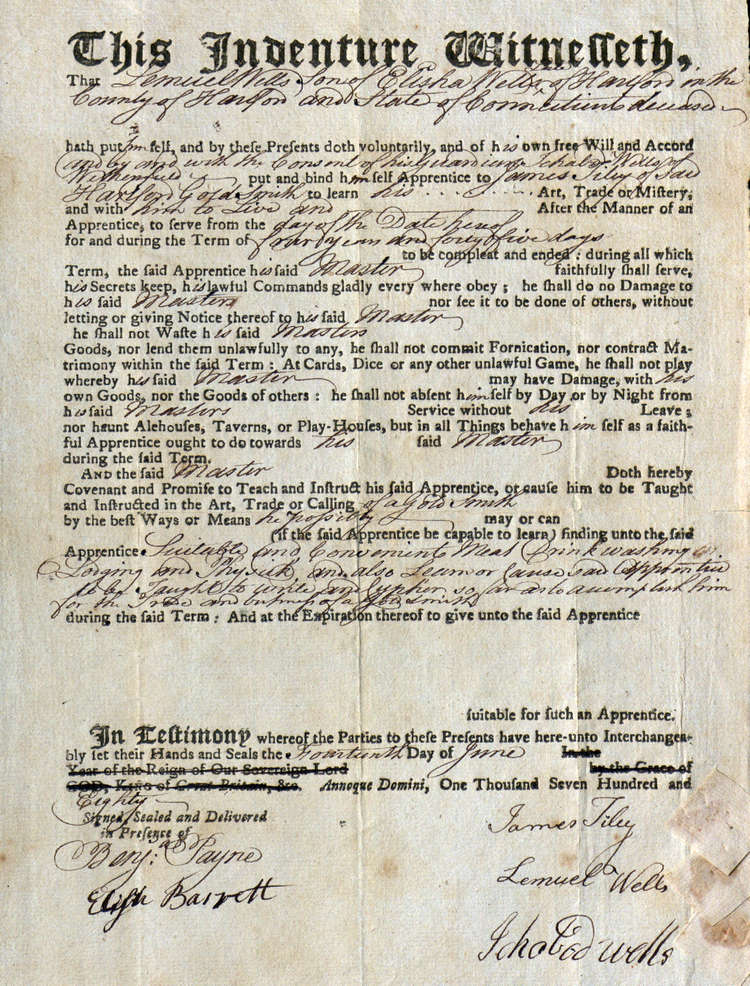 This Indenture Witneſſeth,
That Lemuel Wells Son of Elisha Wells of Hartford in the
County of Hartford and State of Connecticut deceased
hath put him ſelf, and by theſe Preſents doth voluntarily, and of his own free Will and Accord
and by and with the Consent of his Guardian Ichabod Wells of
Wethersfield put and bind him ſelf Apprentice to James Tiley of said
Hartford Gold Smith to learn his Art, Trade or Miſtery,
and with him to Live and After the Manner of an
Apprentice, to ſerve from the day of the Date hereof
for and during the Term of four years and forty five days
to be compleat and ended: during all which
Term, the ſaid Apprentice his ſaid Master faithfully ſhall ſerve,
his Secrets keep, his lawful Commands gladly every where obey; he ſhall do no Damage to
his ſaid Masters nor ſee it to be done of others, without
letting or giving Notice thereof to his ſaid Master
he ſhall not Waſte his ſaid Masters
Goods, nor lend them unlawfully to any, he ſhall not commit Fornication, nor contract Ma-
trimony within the ſaid Term: At Cards, Dice or any other unlawful Game, he ſhall not play
whereby his ſaid Master may have Damage, with his
own Goods, nor the Goods of others: he ſhall not abſent himſelf by Day or by Night from
his ſaid Masters Service without his Leave;
nor haunt Alehouſes, Taverns, or Play-Houſes, but in all Things behave him ſelf as a faith-
ful Apprentice ought to do towards his ſaid Master
during the ſaid Term.
AND the ſaid Master Doth hereby
Covenant and Promiſe to Teach and Inſtruct his ſaid Apprentice, or cauſe him to be Taught
and Inſtructed in the Art, Trade or Calling of a Gold Smith
by the beſt Ways or Means he possibly may or can
(if the ſaid Apprentice be capable to learn) finding unto the ſaid
Apprentice Suitable and Convenient Meat Drink washing
Lodging and Physick, and also Learn or Cause said Apprentice
to be Taught to write and Cypher so far as to accomplish him
for the Trade and business of a Gold smith
during the ſaid Term: And at the Expiration thereof to give unto the ſaid Apprentice
ſuitable for ſuch an Apprentice.
In Teſtimony whereof the Parties to theſe Preſents have here-unto Interchangea-
bly ſet their Hands and Seals the Fourteenth Day of June In the
Year of the Reign of Our Sovereign Lord by the Grace of
GOD, King of Great-Britain, &c. Annoque Domini, One Thouſand Seven Hundred and
Eighty
Signed, Sealed and Delivered
in Preſence of
James Tiley
Benj: Payne
Lemuel Wells
Barrett
Ichabod wells